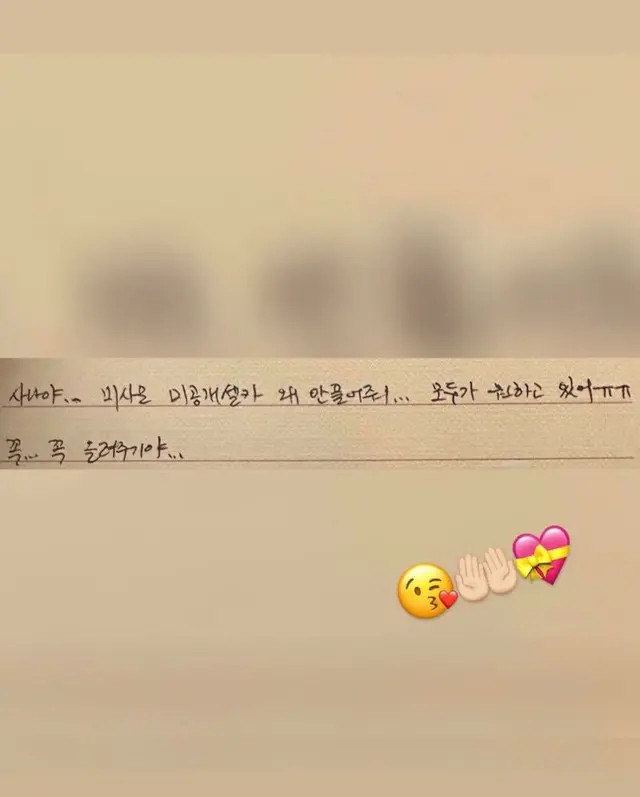 사나야... 미사모 미공개셀카 왜 안풀어주니... 모두가 원하고 있어ㅠㅠ
꼭... 꼭 올려주기야...